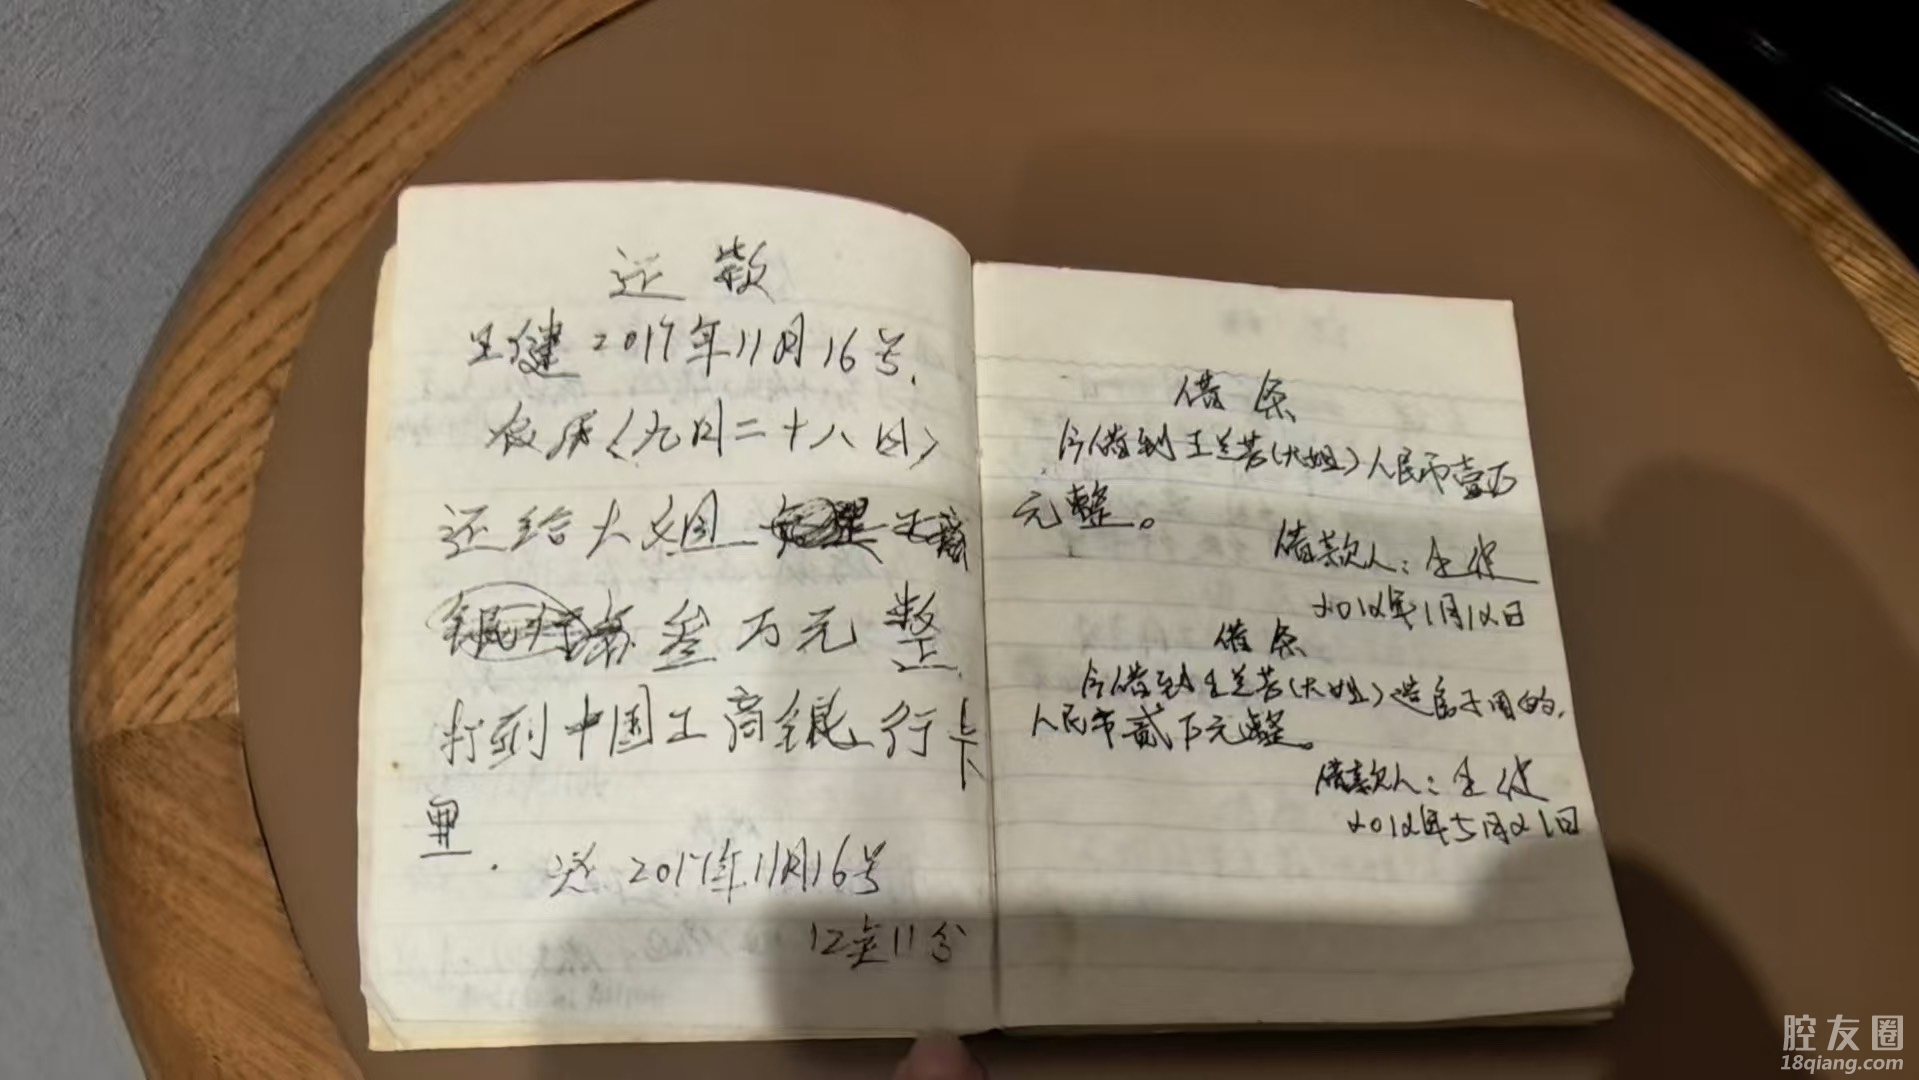 还款
王健2017年11月16号.
农历(九月二十八日)
还给大姐
叁万元整
打到中国工商银行卡
里.
还 2017年11月16号
12点11分
借条
今借到王兰芳(大姐)人民币壹万
元整。
借款人:王健
2012年1月12日
借条
今借到王兰芳(大姐)造房子用的,
人民币贰万元整。
借款人:王健
2012年5月21日
腔友圈
18qiang.com